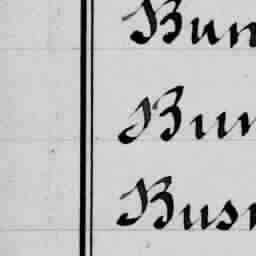 Bun
Bun
Busi